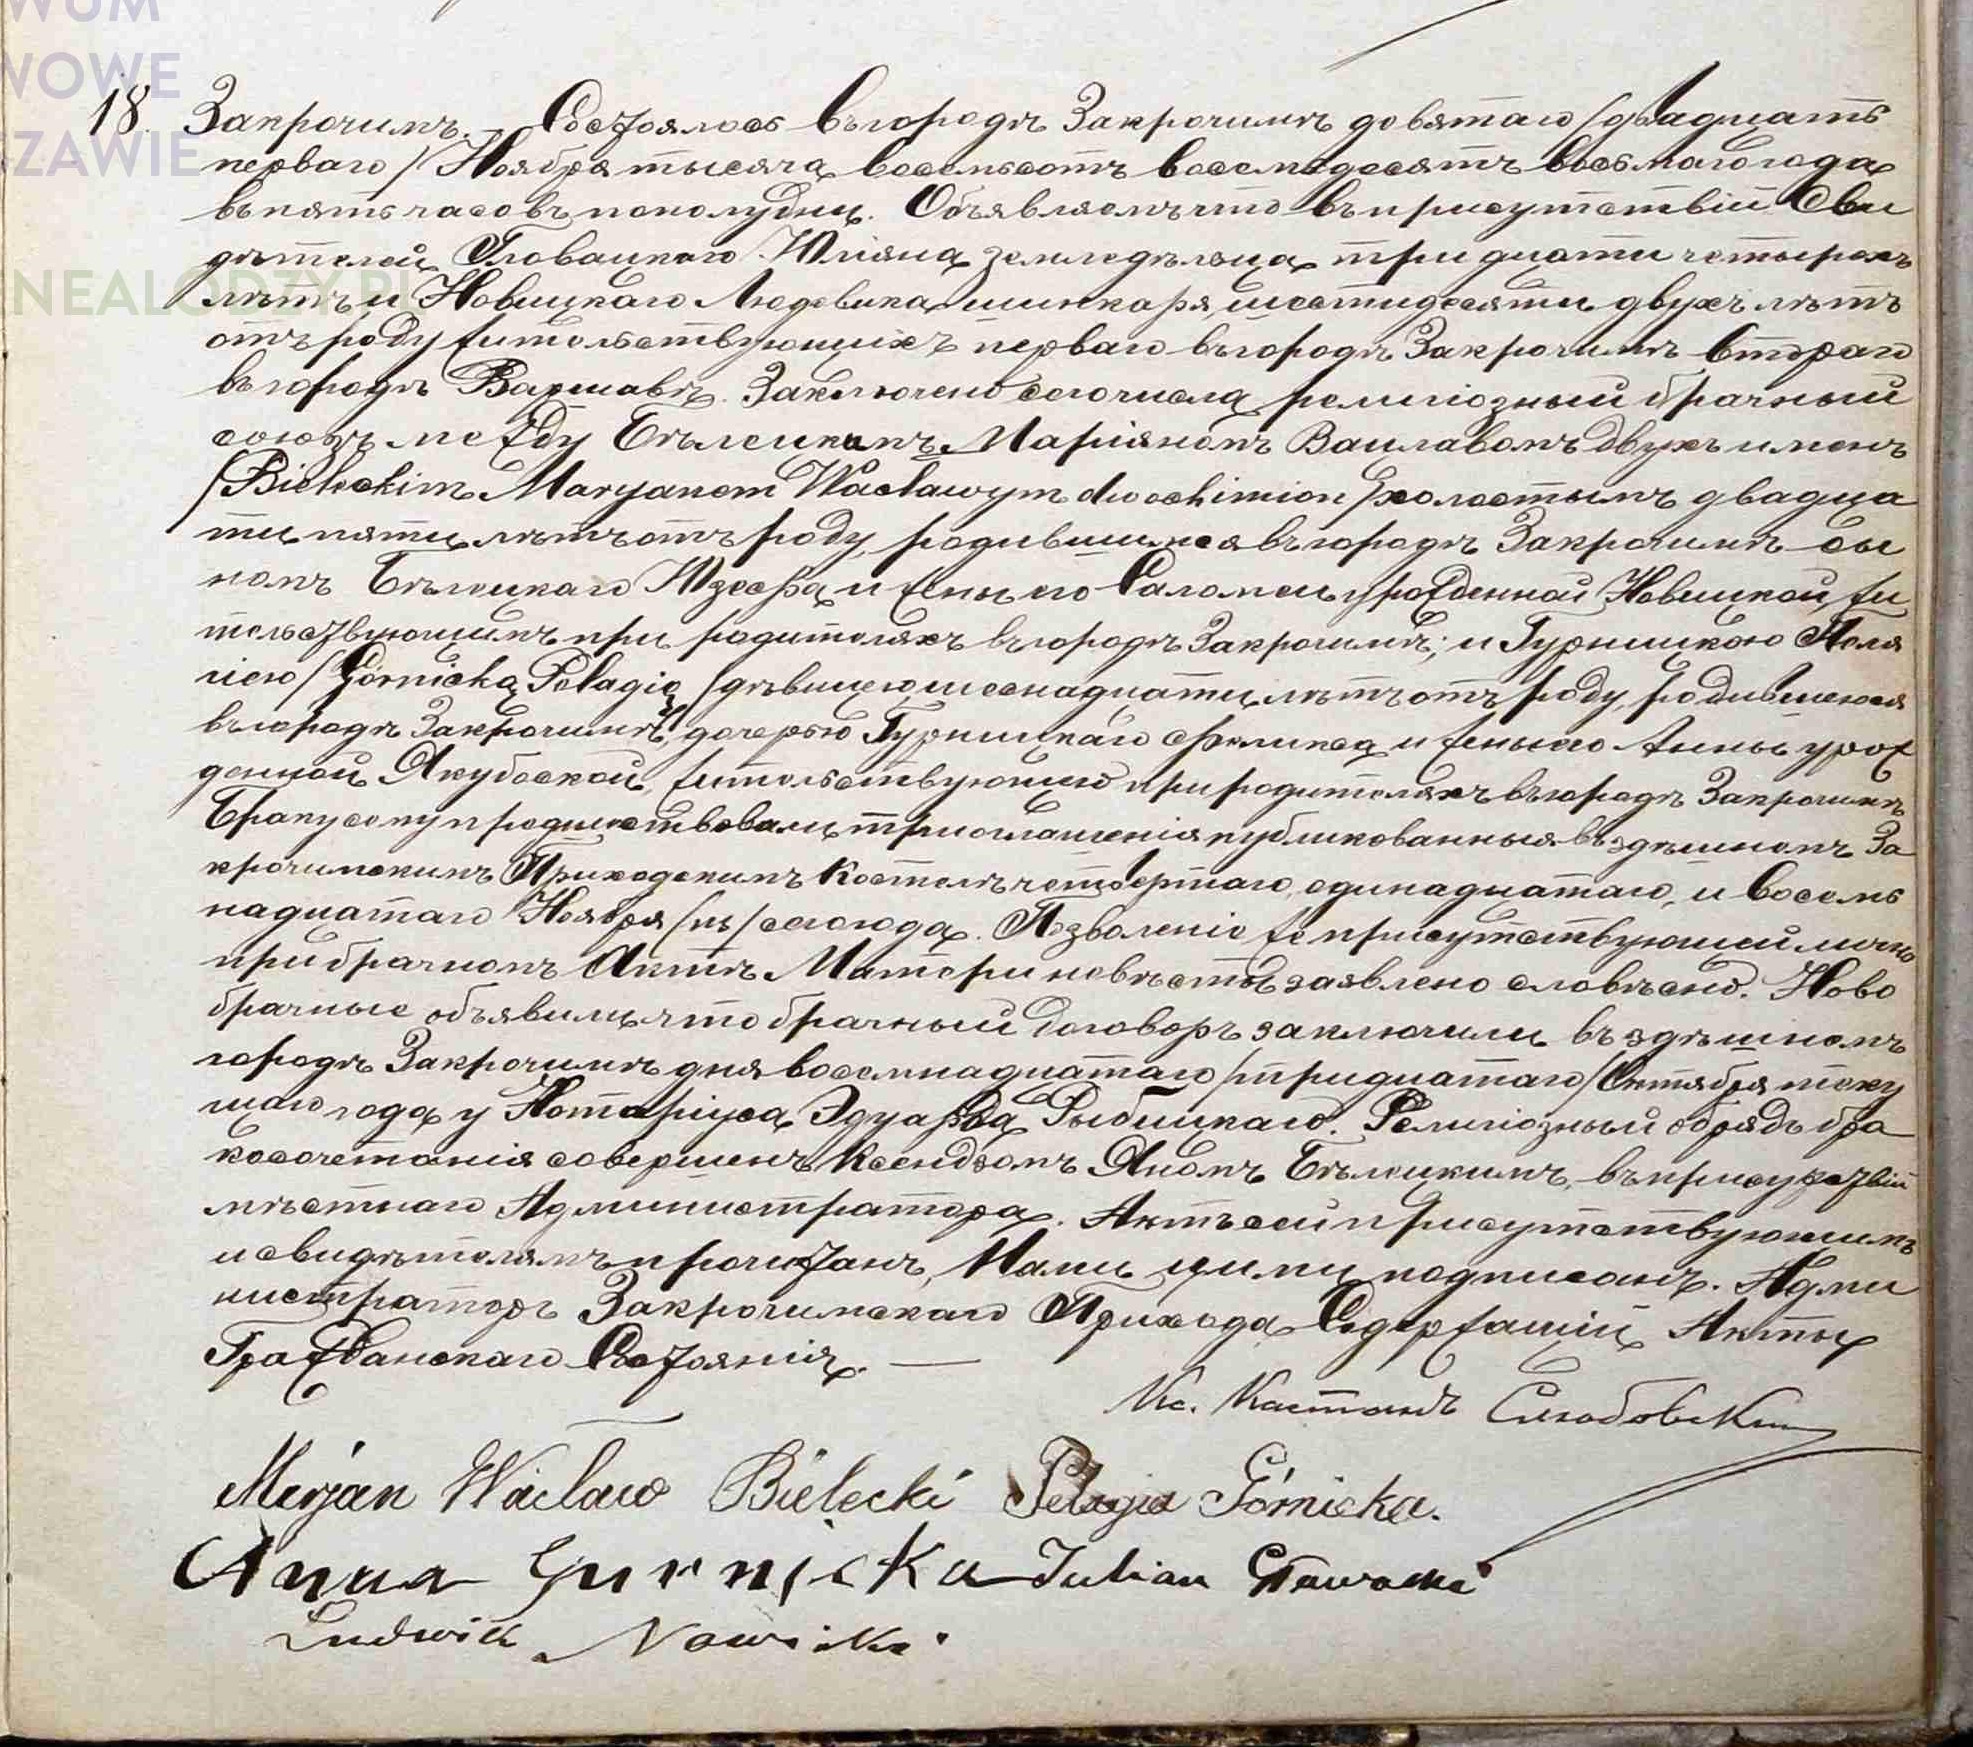 WUM
WOWE
SZAWIE
NEALODZY.PL
18. Закрочимъ. Состоялось въ городѣ Закрочимѣ девятаго /двадцать
перваго/ Ноября тысяча восемьсотъ восемьдесятъ восьмаго года
въ пять часовъ пополудни. Объявляемъ что въ присутствіи Сви
дѣтелей Гловацкаго Юліяна земледѣльца тридцати четырехъ
лѣтъ и Новицкаго Людовика шинкаря, шестидесяти двухъ лѣтъ
отъ роду жительствующихъ перваго въ городѣ Закрочимѣ втораго
въ городѣ Варшавѣ. Заключено сего числа религіозный брачный
союзъ между Бѣлецкимъ Маріяномъ Вацлавомъ двухъ именъ
/Bieleckim Maryanem Wacławym dwoch imion/ холостымъ двадца
ти пяти лѣтъ отъ роду, родившимся въ городѣ Закрочимѣ сы
номъ Бѣлецкаго Юзефа и жены его Саломеи урожденной Новицкой, жи
тельствующимъ при родителяхъ въ городѣ Закрочимѣ; и Гурницкою Пеля
гіею /Górnicką Pelagią/ дѣвицею шеснадцати лѣтъ отъ роду, родившеюся
въ городѣ Закрочимѣ, дочерью Гурницкаго Феликса и жены его Анны урож
денной Якубской, жительствующею при родителяхъ въ городѣ Закрочимѣ
Браку сему предшествовали три оглашенія публикованныя въ здѣшномъ За
крочимскимъ Приходскимъ Костелѣ четвертаго, одинадцатаго, и восем
надцатаго Ноября /нс/ сего года. Позволеніе же присутствующей лично
при брачномъ Актѣ Матери невѣсты заявлено словѣсно. Ново
брачные объявили что брачный договоръ заключили въ здѣшномъ
городѣ Закрочимѣ дня восемнадцатаго /тридцатаго/ Октября теку
щаго года у Нотаріуса Эдуарда Рыбицкаго. Религіозный обрядъ бра
косочетанія совершенъ Ксендзомъ Яномъ Бѣлецкимъ, въ присутствіи
мѣстнаго Администратора. Актъ сей присутствующимъ
и свидѣтелямъ прочитанъ, Нами и ими подписанъ. Адми
нистраторъ Закрочимскаго Прихода Содержащій Акты
Гражданскаго Состоянія. —
Кс.
Marjan Wacław Bielecki Pelagia Górnicka.
Anna Gurnicka Julian Głowacki
Ludwik Nowicki.